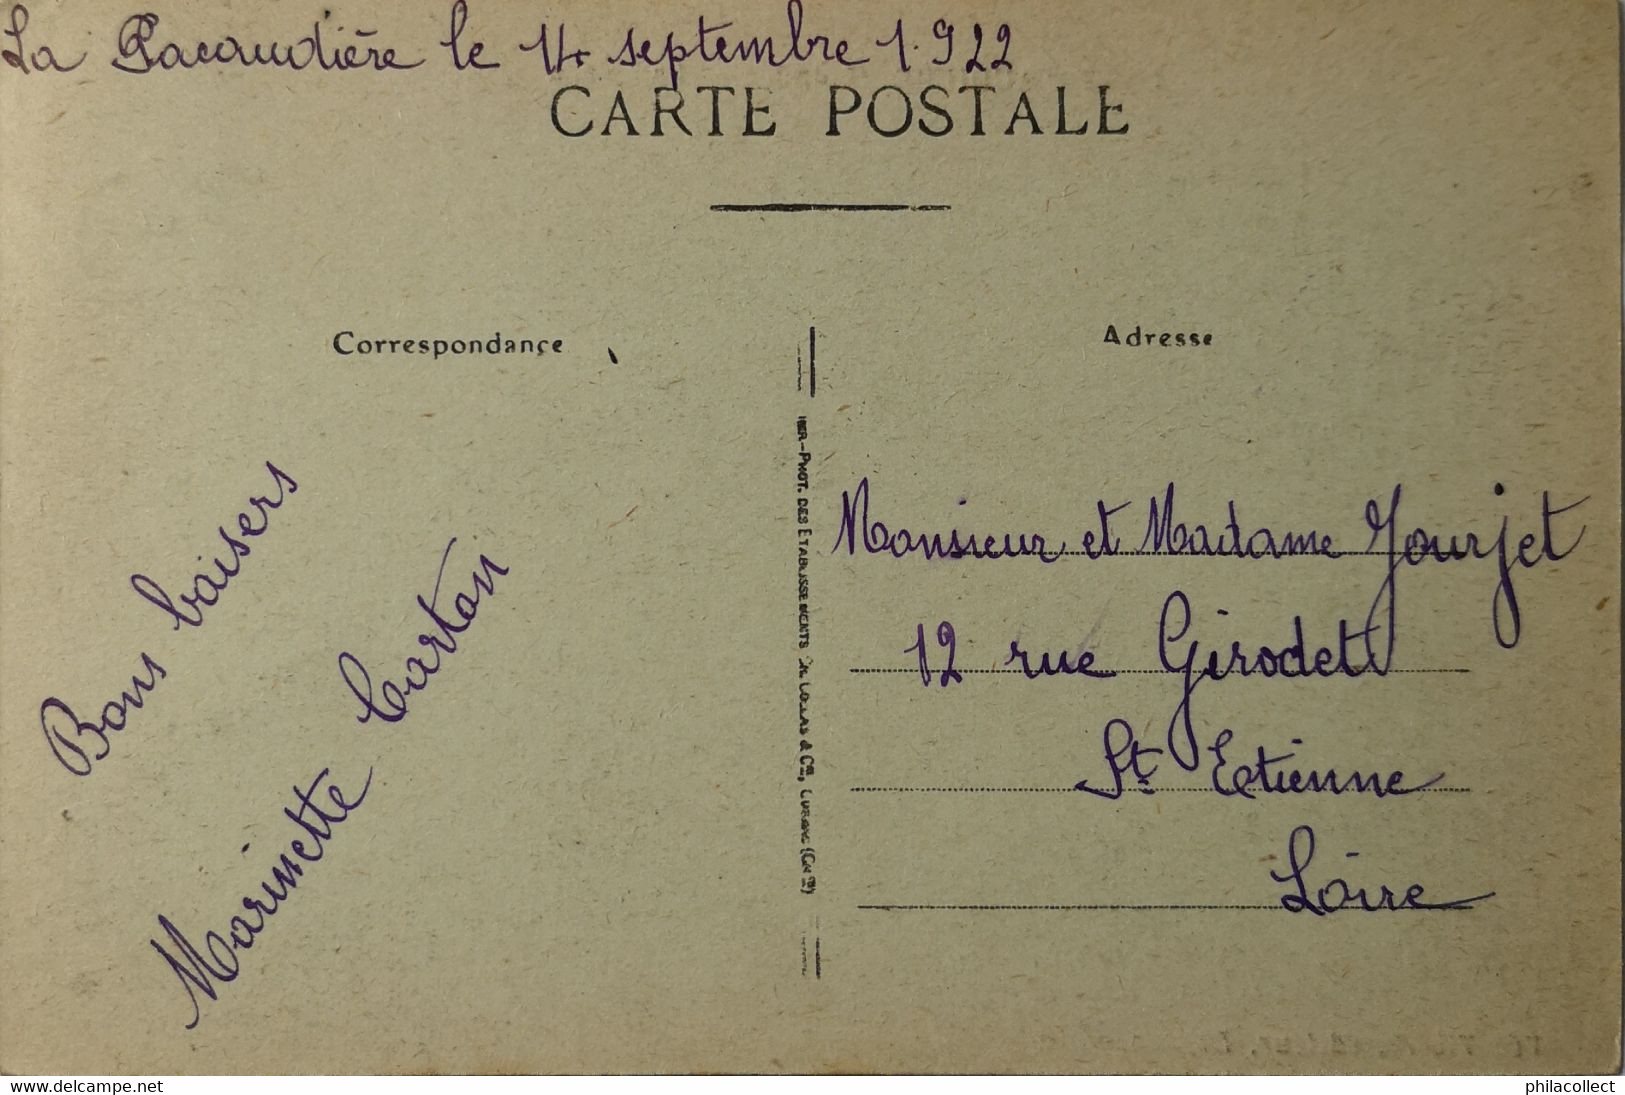 La Pacaudière le 14 septembre 1.922
CARTE POSTALE
Correspondance
Adresse
Bons baisers
Marinette Carton
PHOT. DES ETABLISSEMENTS & Cie,
Monsieur et Madame Gourjet
12 rue Girodet
St Etienne
Loire
delcampe.net
philacollect